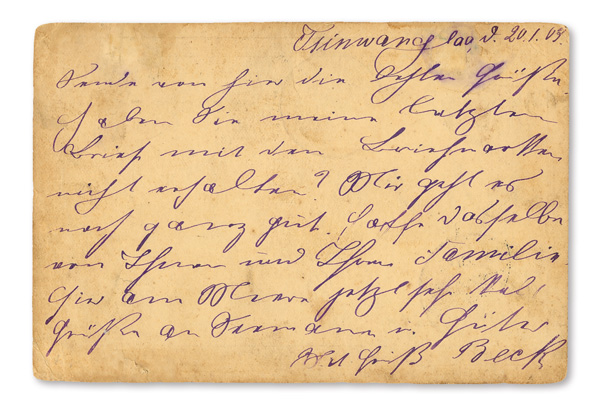 Tsinwang tao, d. 20.1.09.
Sende von hier die besten Grüße.
Haben Sie meine letzten
Brief mit den Briefmarken
nicht erhalten? Mir geht es
noch ganz gut. Hoffe dasselbe
von Ihnen und Ihrer Familie.
Hier am Meere jetzt sehr kalt
Grüße an Seemann u.
Gruß Beck